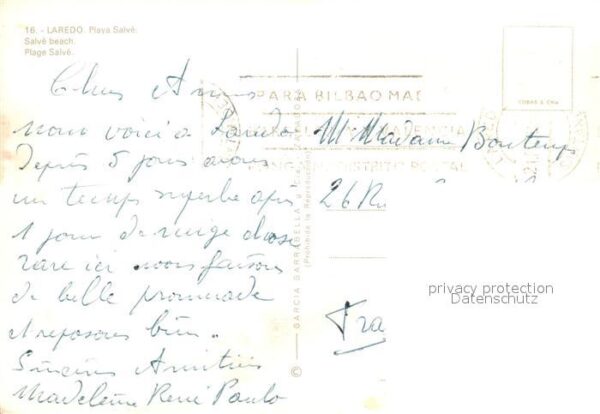 16. - LAREDO. Playa Salvé.
Salvé beach.
Plage Salvé.
Chers Amis
nous voici à Laredo
Depuis 5 jours avons
un temps superbe après
1 jour de neige chose
rare ici nous faisons
de belle promenade
et reposons bien.
Sincères Amitiés
Madeleine René Paulo
© GARCIA GARRABELLA y Cia.
(Prohibida la Reproducción)
PARA BILBAO MAD
DISTRITO POSTAL
M Madame Bontemps
26 Ru
Fra
privacy protection
Datenschutz